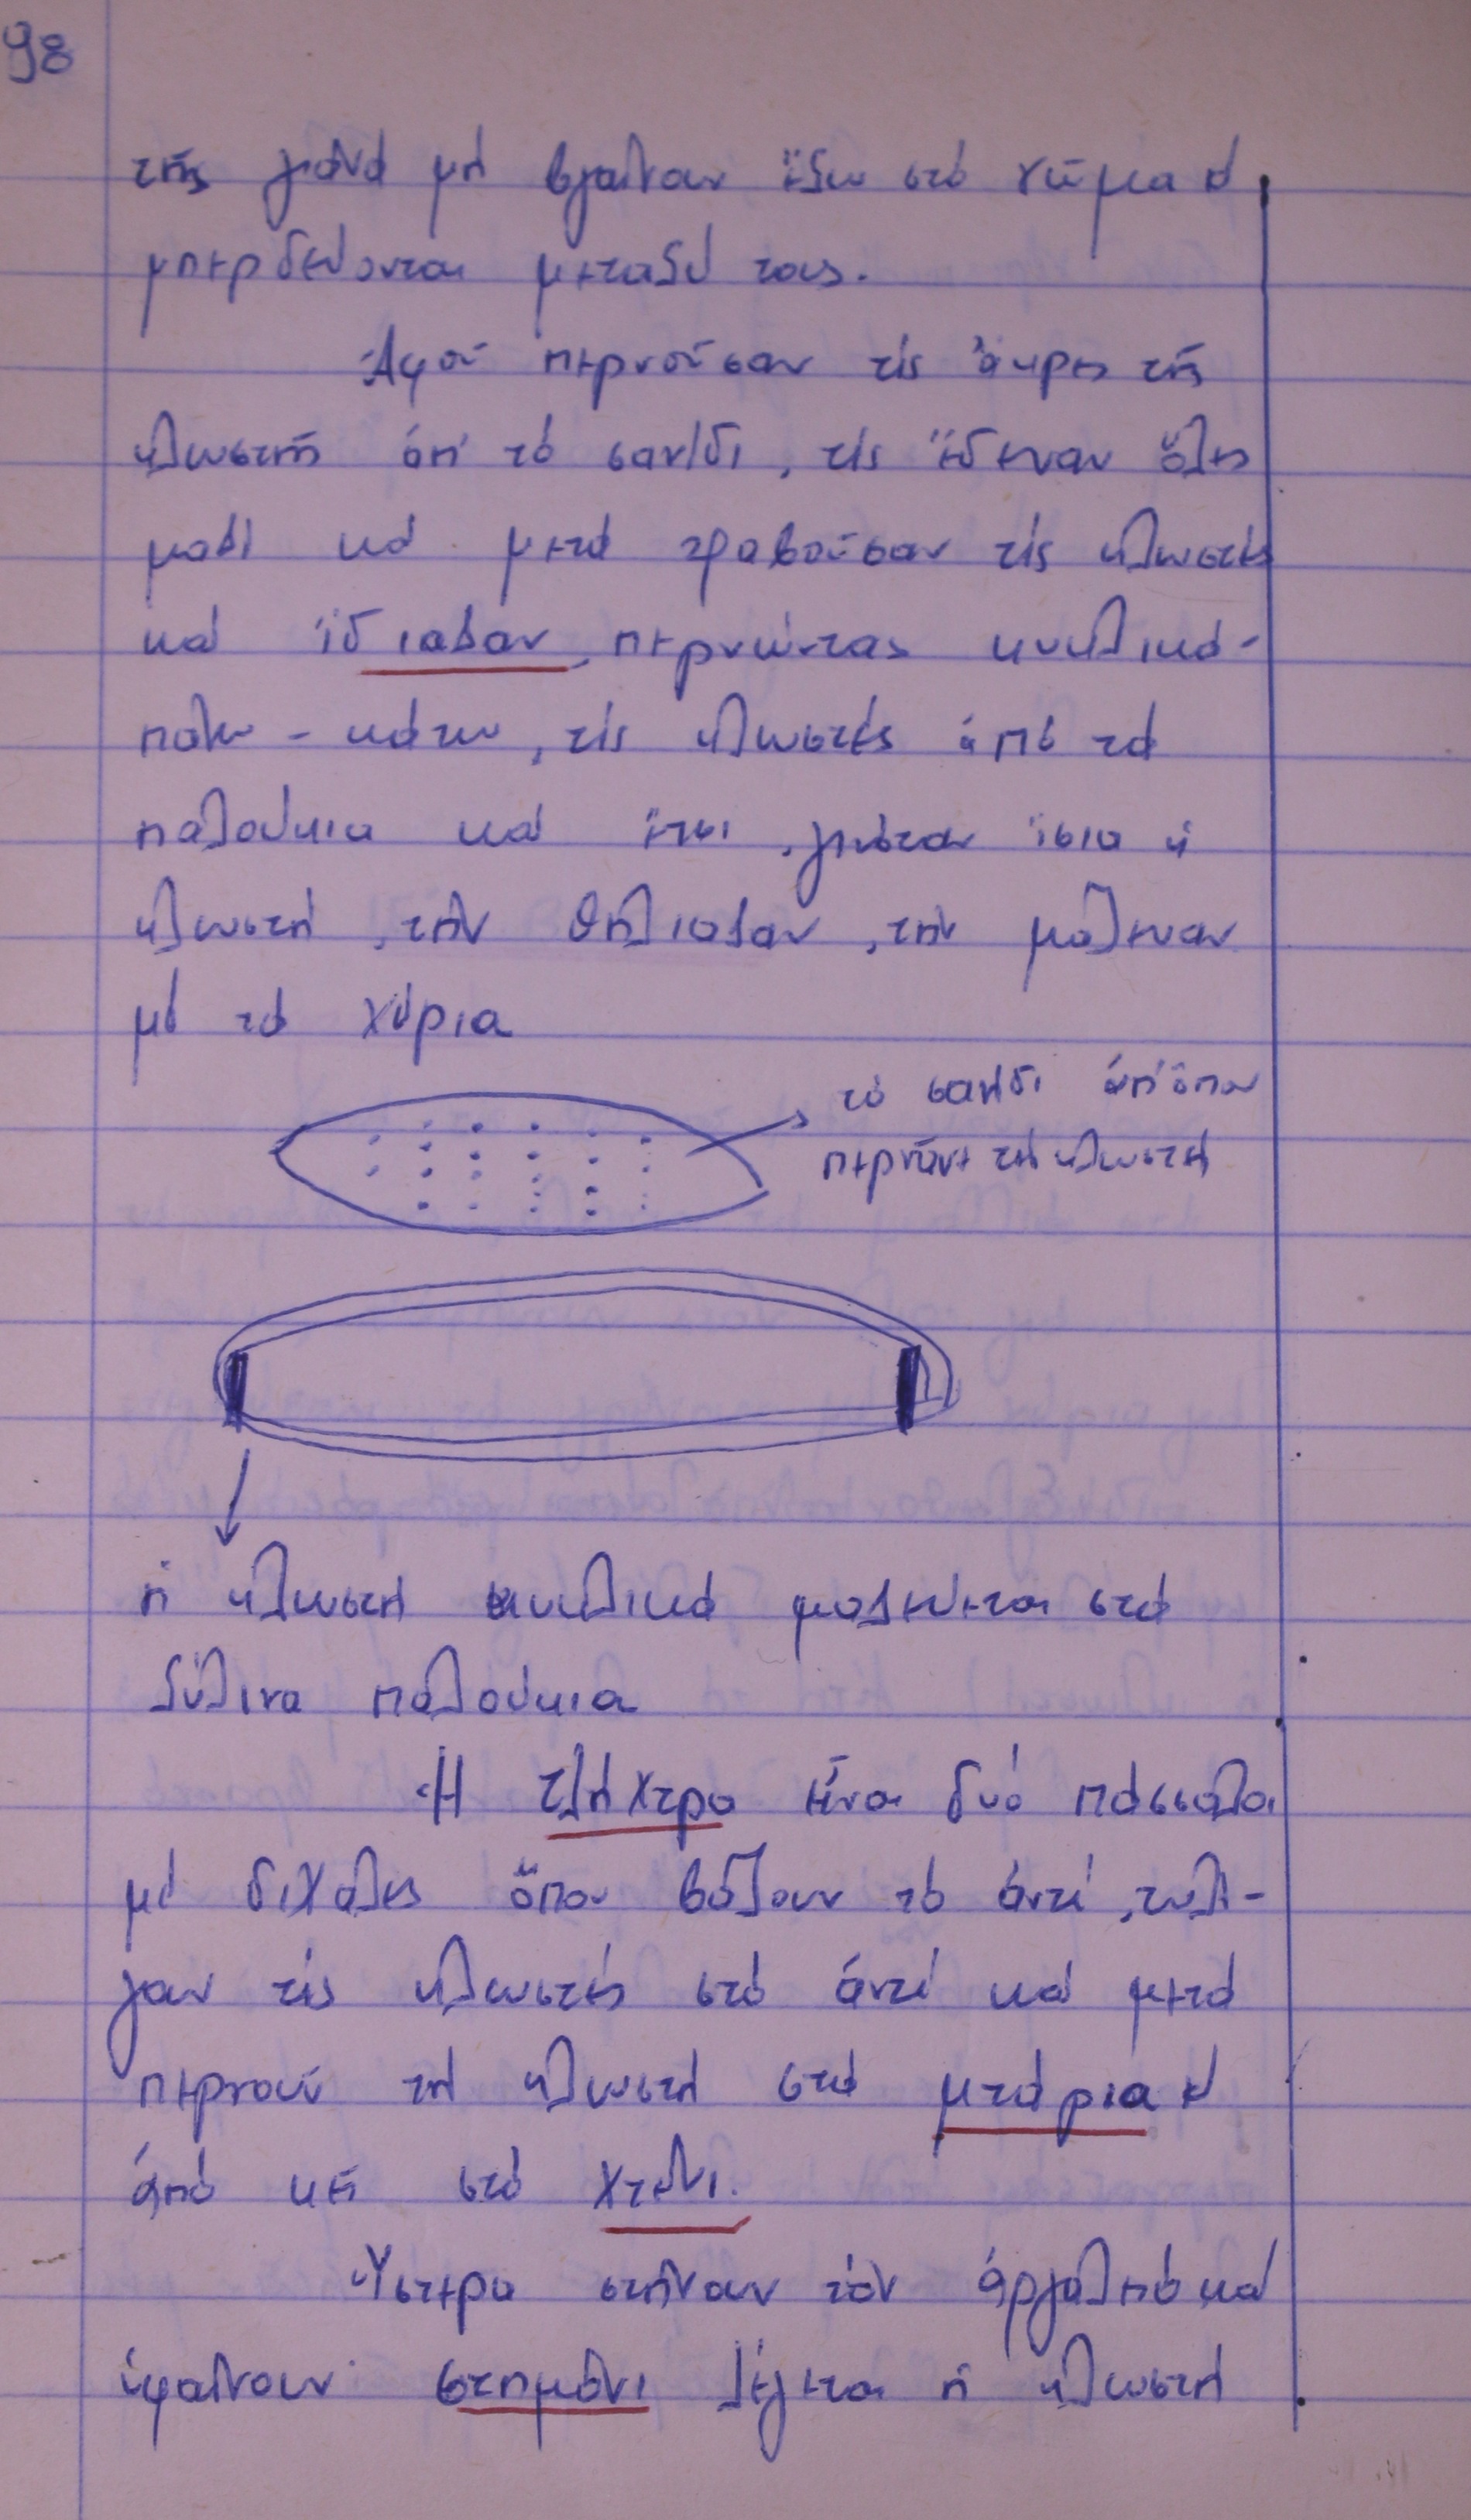 98
τῆς γιὰνά μή βγαίνουν ἔξω στό χῶμα κ'
μπερδεύονται μεταξύ τους.
Ἀφοῦ περνοῦσαν τίς ἄκρες τῆς
κλωστῆς ἀπ' τό σανίδι, τίς ἔδεναν ὅλες
μαζί καί μετά τραβοῦσαν τίς κλωστές
καί ἴδιαζαν, περνώντας κυκλικά-
πάνω - κάτω, τίς κλωστές ἀπό τά
παλούκια καί ἔτσι, γινόταν ἴσια ἡ
κλωστή, τήν θήλιαζαν, τήν μάζευαν
μέ τά χέρια
τό σανίδι ἀπ' ὅπου
περνᾶνε τή κλωστή
ἡ κλωστή κυκλικά μαζεύεται στά
ξύλινα παλούκια
Ἡ τλήχτρα εἶναι δυό πάσσαλοι
μέ διχάλες ὅπου βάζουν τό ἀντί, τυλί-
γουν τίς κλωστές στό ἀντί καί μετά
περνοῦν τή κλωστή στά μτάρια κ'
ἀπό κεῖ στό χτένι.
Ὕστερα στήνουν τόν ἀργαλειό καί
ὑφαίνουν. Στημόνι λέγεται ἡ κλωστή